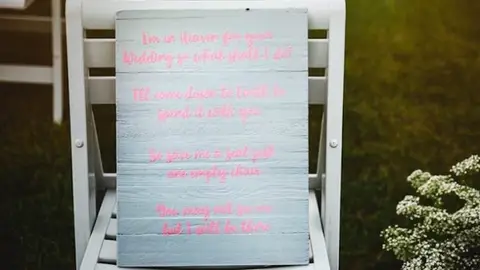 I'm in Heaven for your
Wedding so what shall I do?
I'll come down to Earth to
spend it with you
So save me a seat just
one empty chair
You may not see me
but I will be there